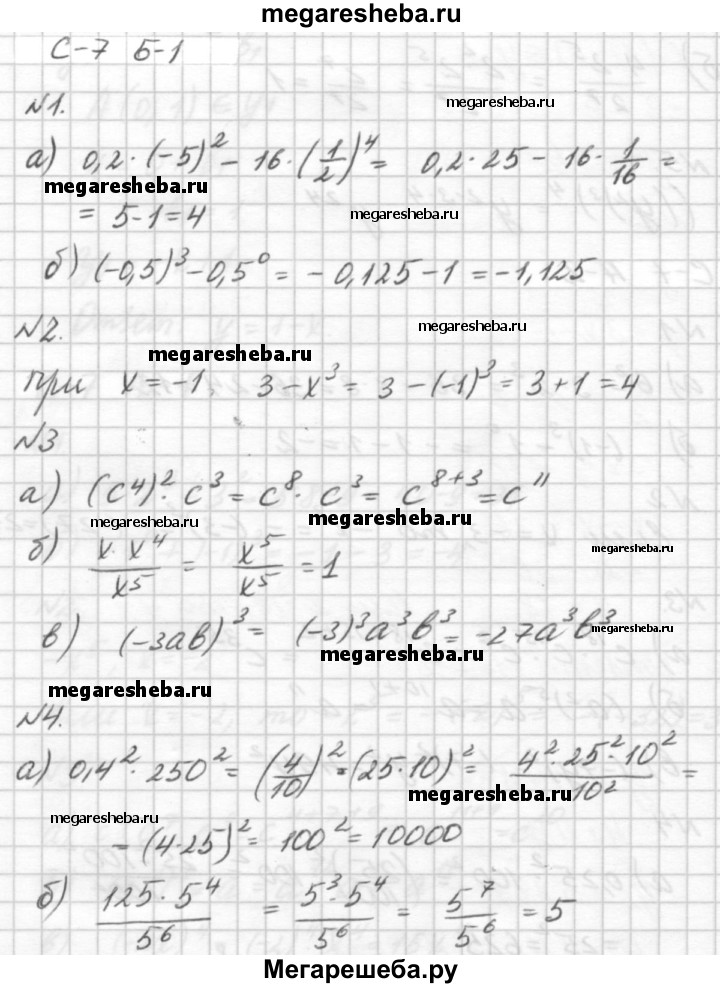 megaresheba.ru
С-7 Б-1
№1.
megaresheba.ru
а) 0,2·(-5)² - 16·(1/2)⁴ = 0,2·25 - 16·1/16 =
megaresheba.ru
= 5-1=4
megaresheba.ru
б) (-0,5)³-0,5⁰ = -0,125-1=-1,125
№2.
megaresheba.ru
megaresheba.ru
при х=-1, 3-х³= 3-(-1)³=3+1=4
№3
а) (c⁴)²·c³=c⁸·c³=c⁸⁺³=c¹¹
megaresheba.ru
megaresheba.ru
б) x·x⁴/x⁵ = x⁵/x⁵ = 1
megaresheba.ru
в) (-3ab)³= (-3)³a³b³=-27a³b³
megaresheba.ru
megaresheba.ru
megaresheba.ru
№4.
а) 0,4²·250²=(4/10)²·(25·10)²= 4²·25²·10²/10² =
megaresheba.ru
megaresheba.ru
= (4·25)²= 100²=10000
б) 125·5⁴/5⁶ = 5³·5⁴/5⁶ = 5⁷/5⁶ = 5
Мегарешеба.ру